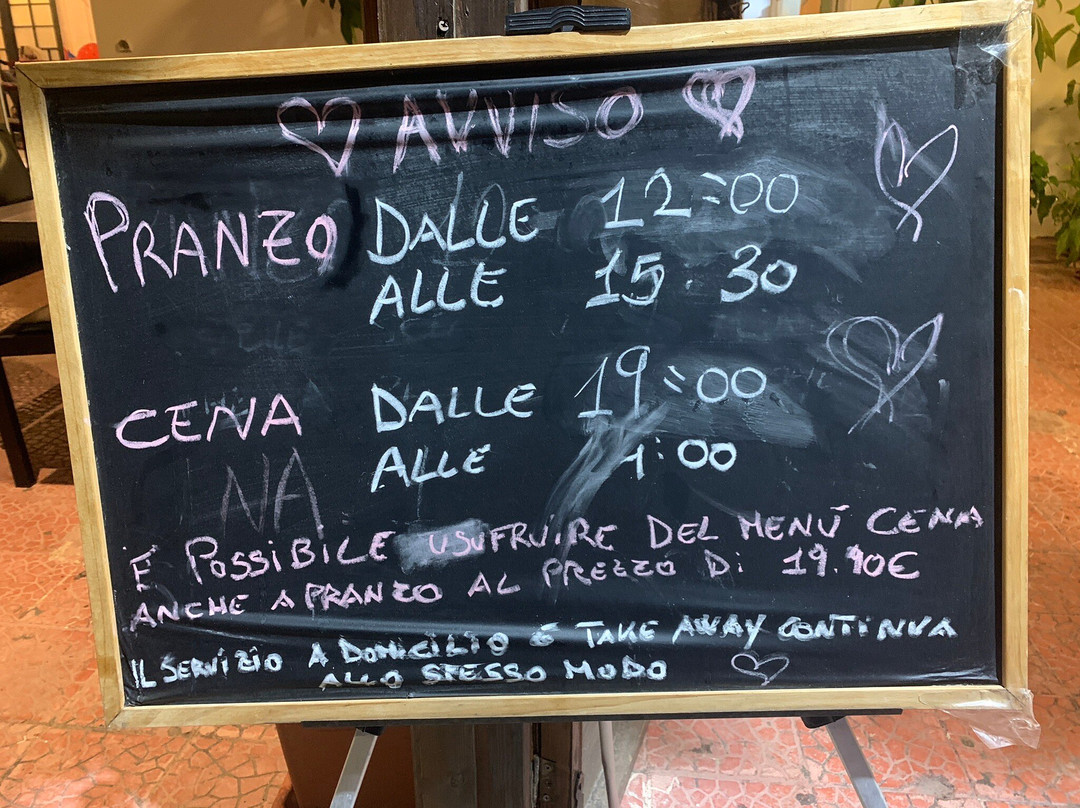 AVVISO
PRANZO DALLE 12:00
ALLE 15.30
CENA DALLE 19:00
ALLE :00
NA
É POSSIBILE USUFRUIRE DEL MENÚ CENA
ANCHE A PRANZO AL PREZZO Di 19.90€
IL SERVIZIO A DOMICILIO E TAKE AWAY CONTINUA
ALLO STESSO MODO